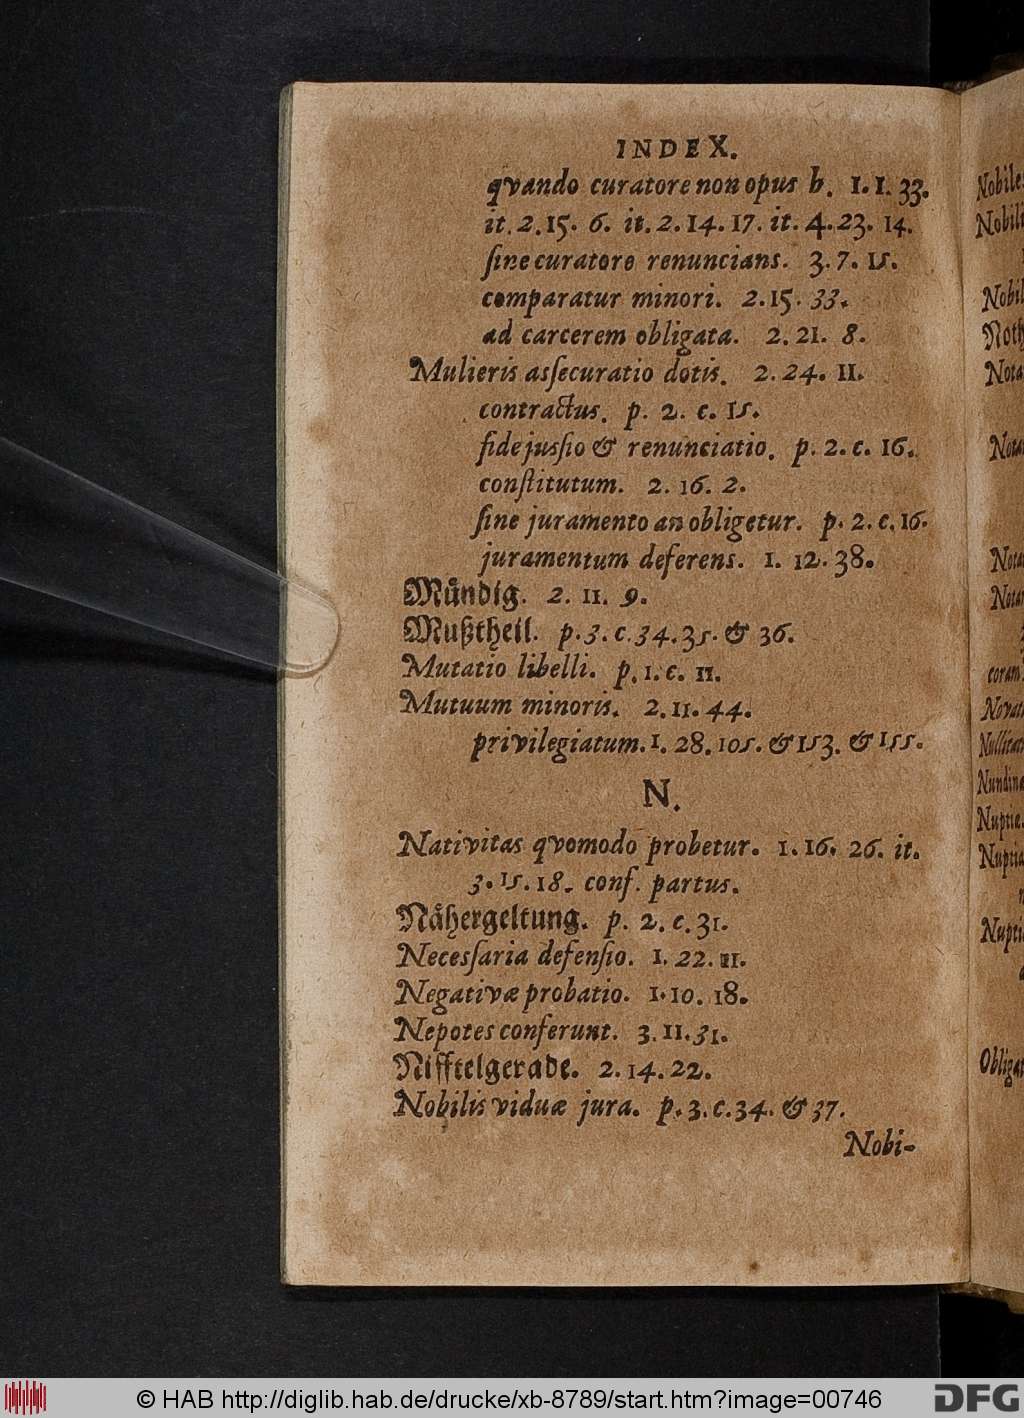 INDEX.
qvando curatore non opus h. 1. 1. 33.
it. 2. 15. 6. it. 2. 14. 17. it. 4. 23. 14.
ſine curatore renuncians. 3. 7. 15.
comparatur minori. 2. 15. 33.
ad carcerem obligata. 2. 21. 8.
Mulieris aſſecuratio dotis. 2. 24. 11.
contractus. p. 2. c. 15.
fidejusſio & renunciatio. p. 2. c. 16.
conſtitutum. 2. 16. 2.
ſine juramento an obligetur. p. 2. c. 16.
juramentum deferens. 1. 12. 38.
Mündig. 2. 11. 9.
Mußtheil. p. 3. c. 34. 35. & 36.
Mutatio libelli. p. 1. c. 11.
Mutuum minoris. 2. 11. 44.
privilegiatum. 1. 28. 105. & 153. & 155.
N.
Nativitas qvomodo probetur. 1. 16. 26. it.
3. 15. 18. conf. partus.
Nähergeltung. p. 2. c. 31.
Necesſaria defenſio. 1. 22. 11.
Negativæ probatio. 1. 10. 18.
Nepotes conferunt. 3. 11. 31.
Nifftelgerade. 2. 14. 22.
Nobilis viduæ jura. p. 3. c. 34. & 37.
Nobi-
Nobil
Noth
Nota
Nota
Nota
Nota
coram
Novati
Nullitat
Nundinæ
Nuptiæ
Nuptia
Nuptia
Obligat
© HAB http://diglib.hab.de/drucke/xb-8789/start.htm?image=00746
DFG